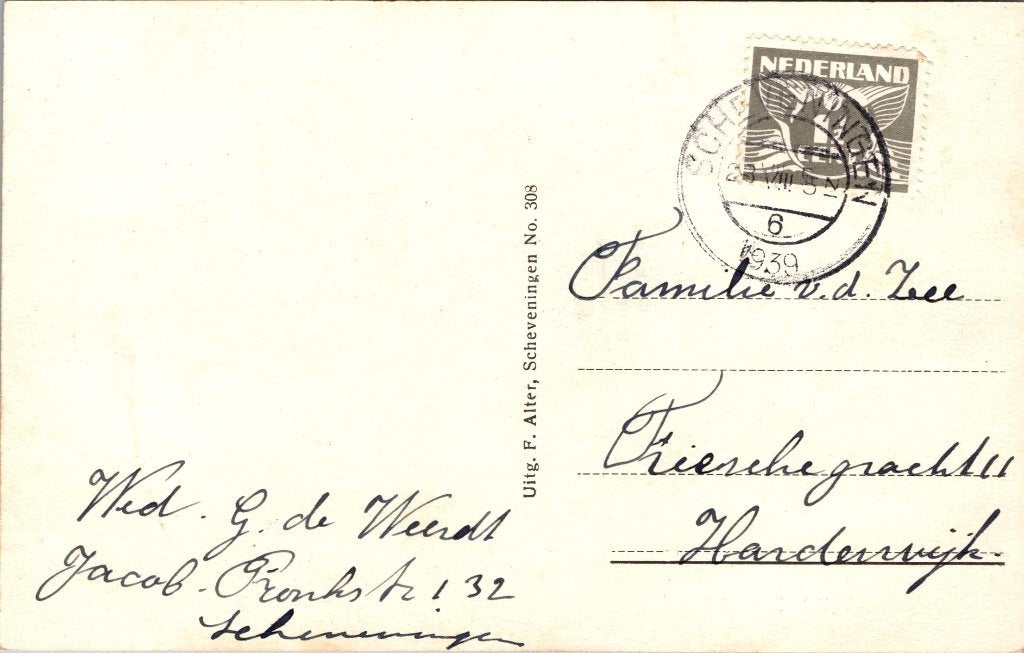 NEDERLAND
SCHEVENINGEN
23 VIII 5 N
6
1939
Familie v.d. Zee
Friesche gracht 11
Harderwijk.
Uitg. F. Alter, Scheveningen No. 308
Wed. G. de Weerdt
Jacob. Pronkstr 132
Scheveningen